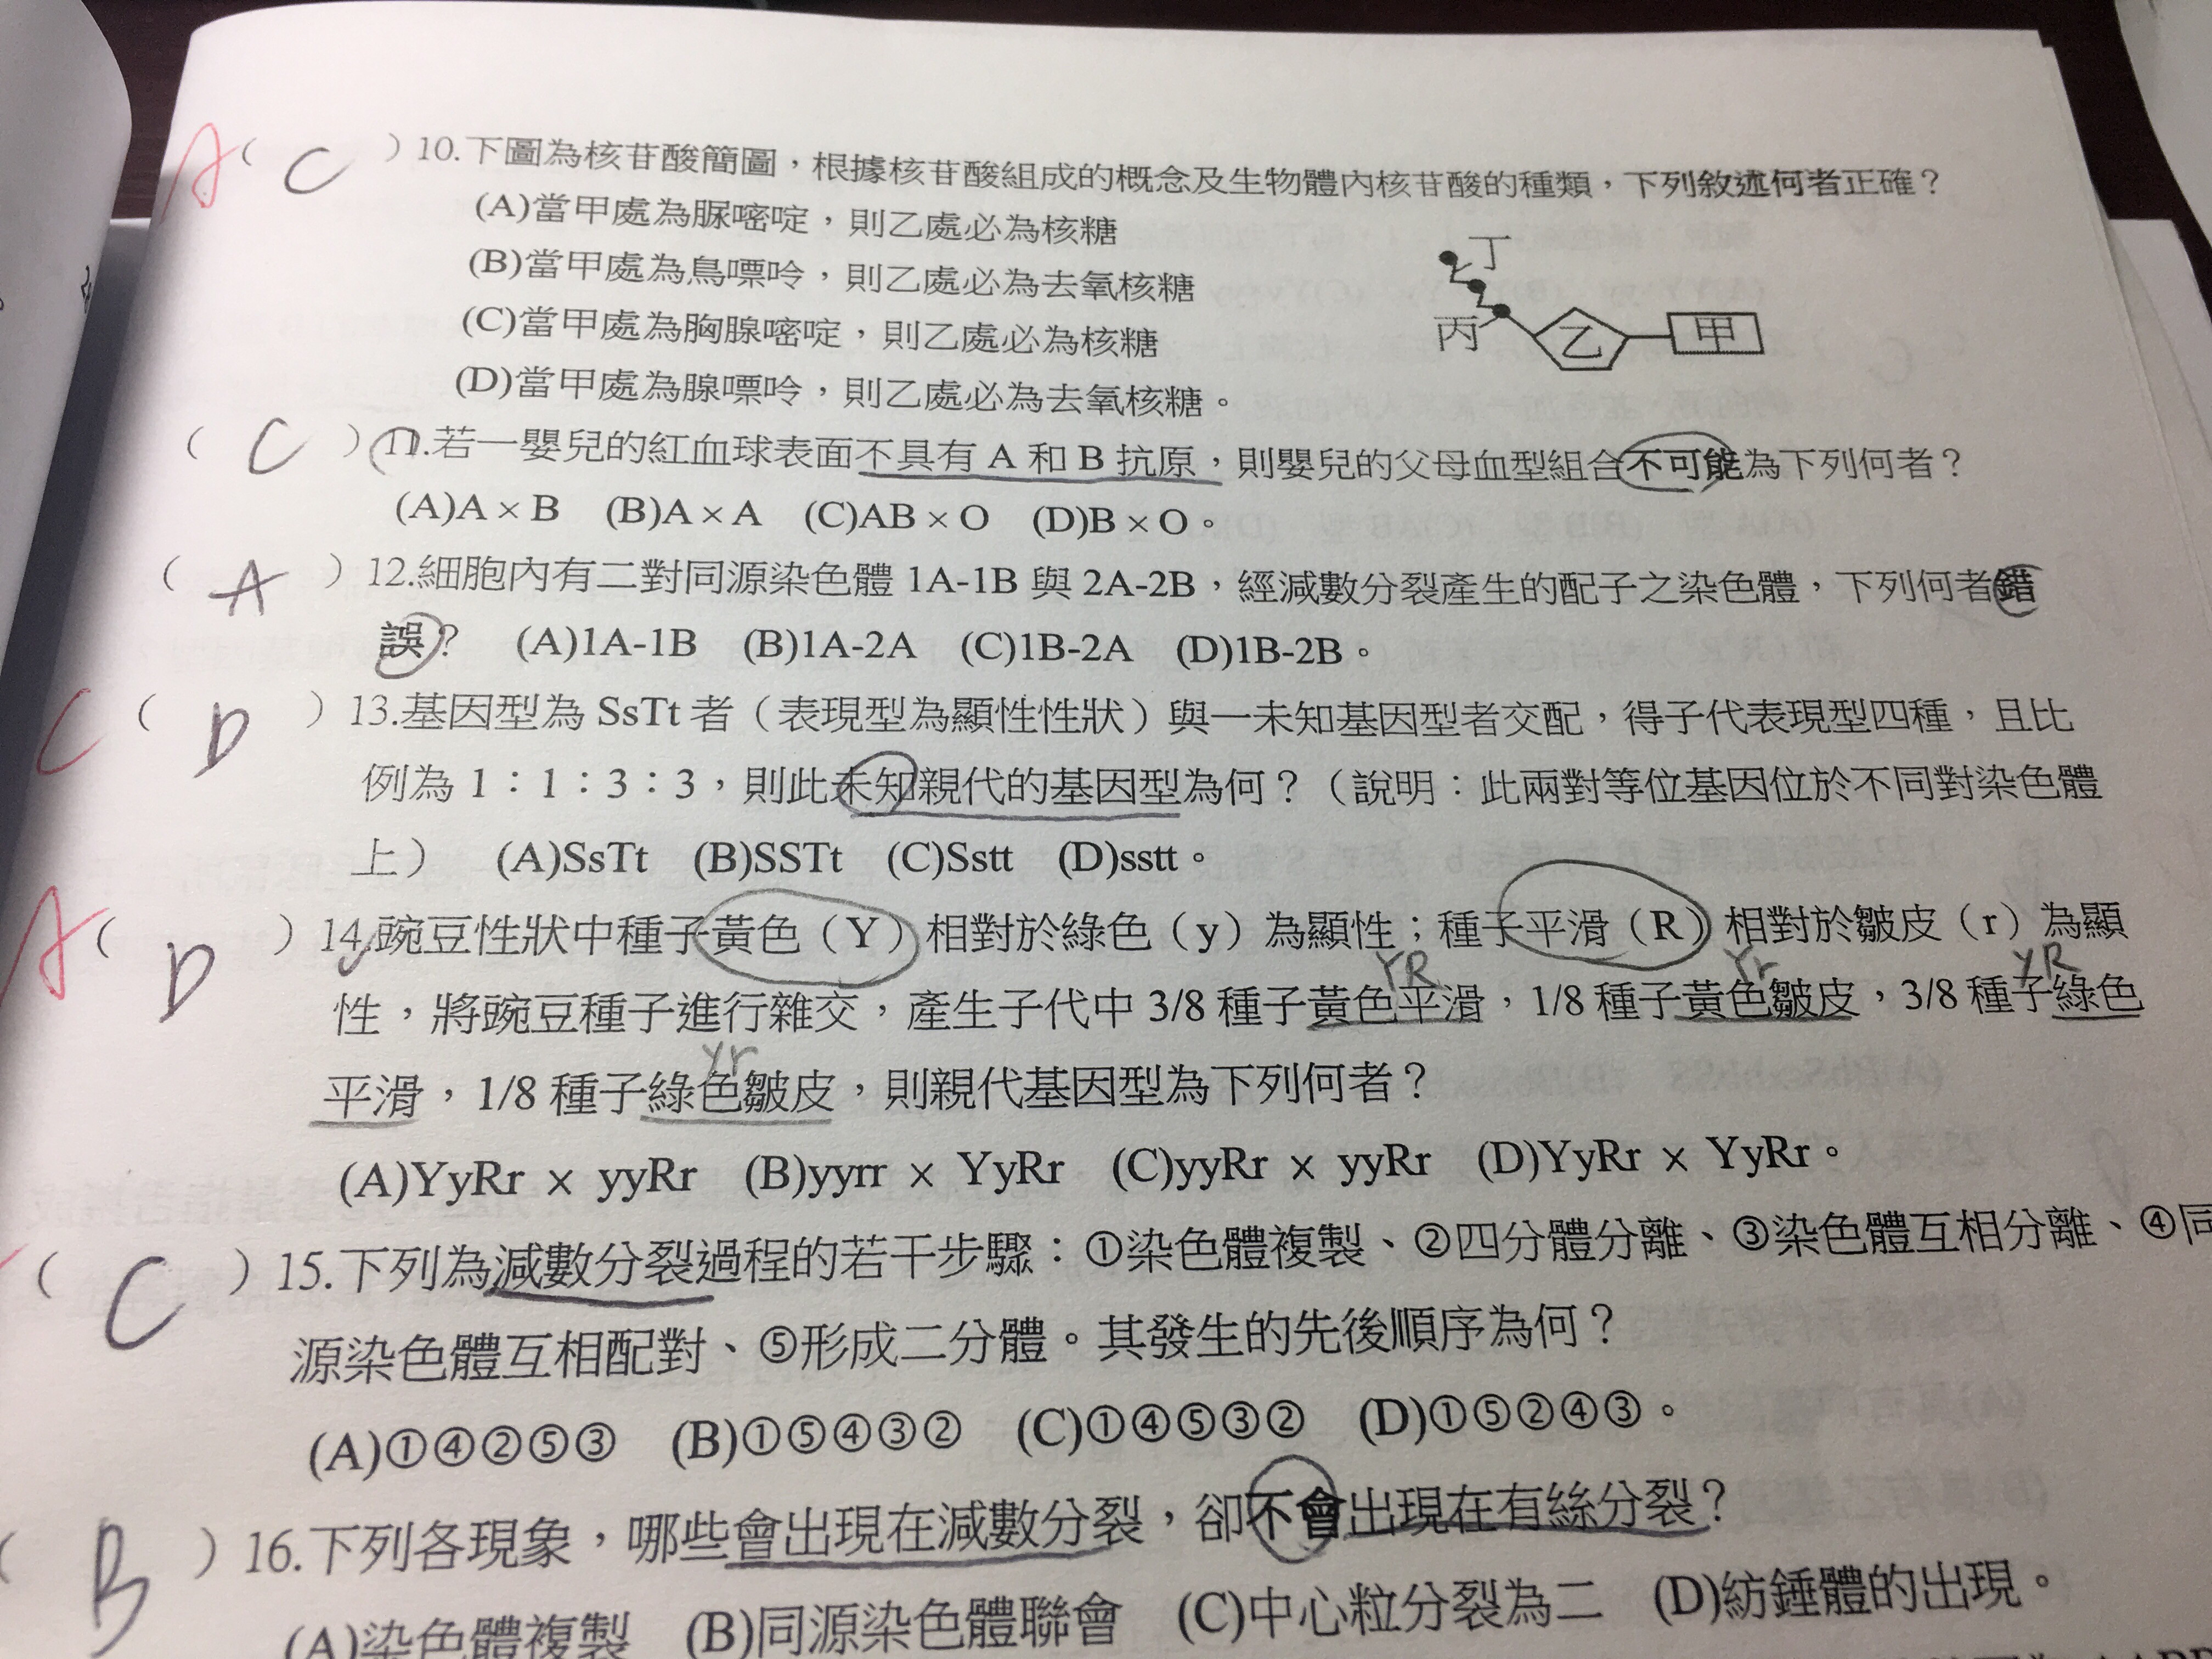 A( C )10.下圖為核苷酸簡圖，根據核苷酸組成的概念及生物體內核苷酸的種類，下列敘述何者正確？
(A)當甲處為脲嘧啶，則乙處必為核糖
(B)當甲處為鳥嘌呤，則乙處必為去氧核糖
(C)當甲處為胸腺嘧啶，則乙處必為核糖
(D)當甲處為腺嘌呤，則乙處必為去氧核糖。
丁
丙
乙
甲
( C )11.若一嬰兒的紅血球表面不具有 A 和 B 抗原，則嬰兒的父母血型組合不可能為下列何者？
(A)A × B (B)A × A (C)AB × O (D)B × O。
( A )12.細胞內有二對同源染色體 1A-1B 與 2A-2B，經減數分裂產生的配子之染色體，下列何者錯
誤？ (A)1A-1B (B)1A-2A (C)1B-2A (D)1B-2B。
C( D )13.基因型為 SsTt 者（表現型為顯性性狀）與一未知基因型者交配，得子代表現型四種，且比
例為 1：1：3：3，則此未知親代的基因型為何？（說明：此兩對等位基因位於不同對染色體
上） (A)SsTt (B)SSTt (C)Sstt (D)sstt。
A( D )14.豌豆性狀中種子黃色（Y）相對於綠色（y）為顯性；種子平滑（R）相對於皺皮（r）為顯
YR Yr yR
性，將豌豆種子進行雜交，產生子代中 3/8 種子黃色平滑，1/8 種子黃色皺皮，3/8 種子綠色
yr
平滑，1/8 種子綠色皺皮，則親代基因型為下列何者？
(A)YyRr × yyRr (B)yyrr × YyRr (C)yyRr × yyRr (D)YyRr × YyRr。
( C )15.下列為減數分裂過程的若干步驟：①染色體複製、②四分體分離、③染色體互相分離、④同
源染色體互相配對、⑤形成二分體。其發生的先後順序為何？
(A)①④②⑤③ (B)①⑤④③② (C)①④⑤③② (D)①⑤②④③。
( B )16.下列各現象，哪些會出現在減數分裂，卻不會出現在有絲分裂？
(A)染色體複製 (B)同源染色體聯會 (C)中心粒分裂為二 (D)紡錘體的出現。